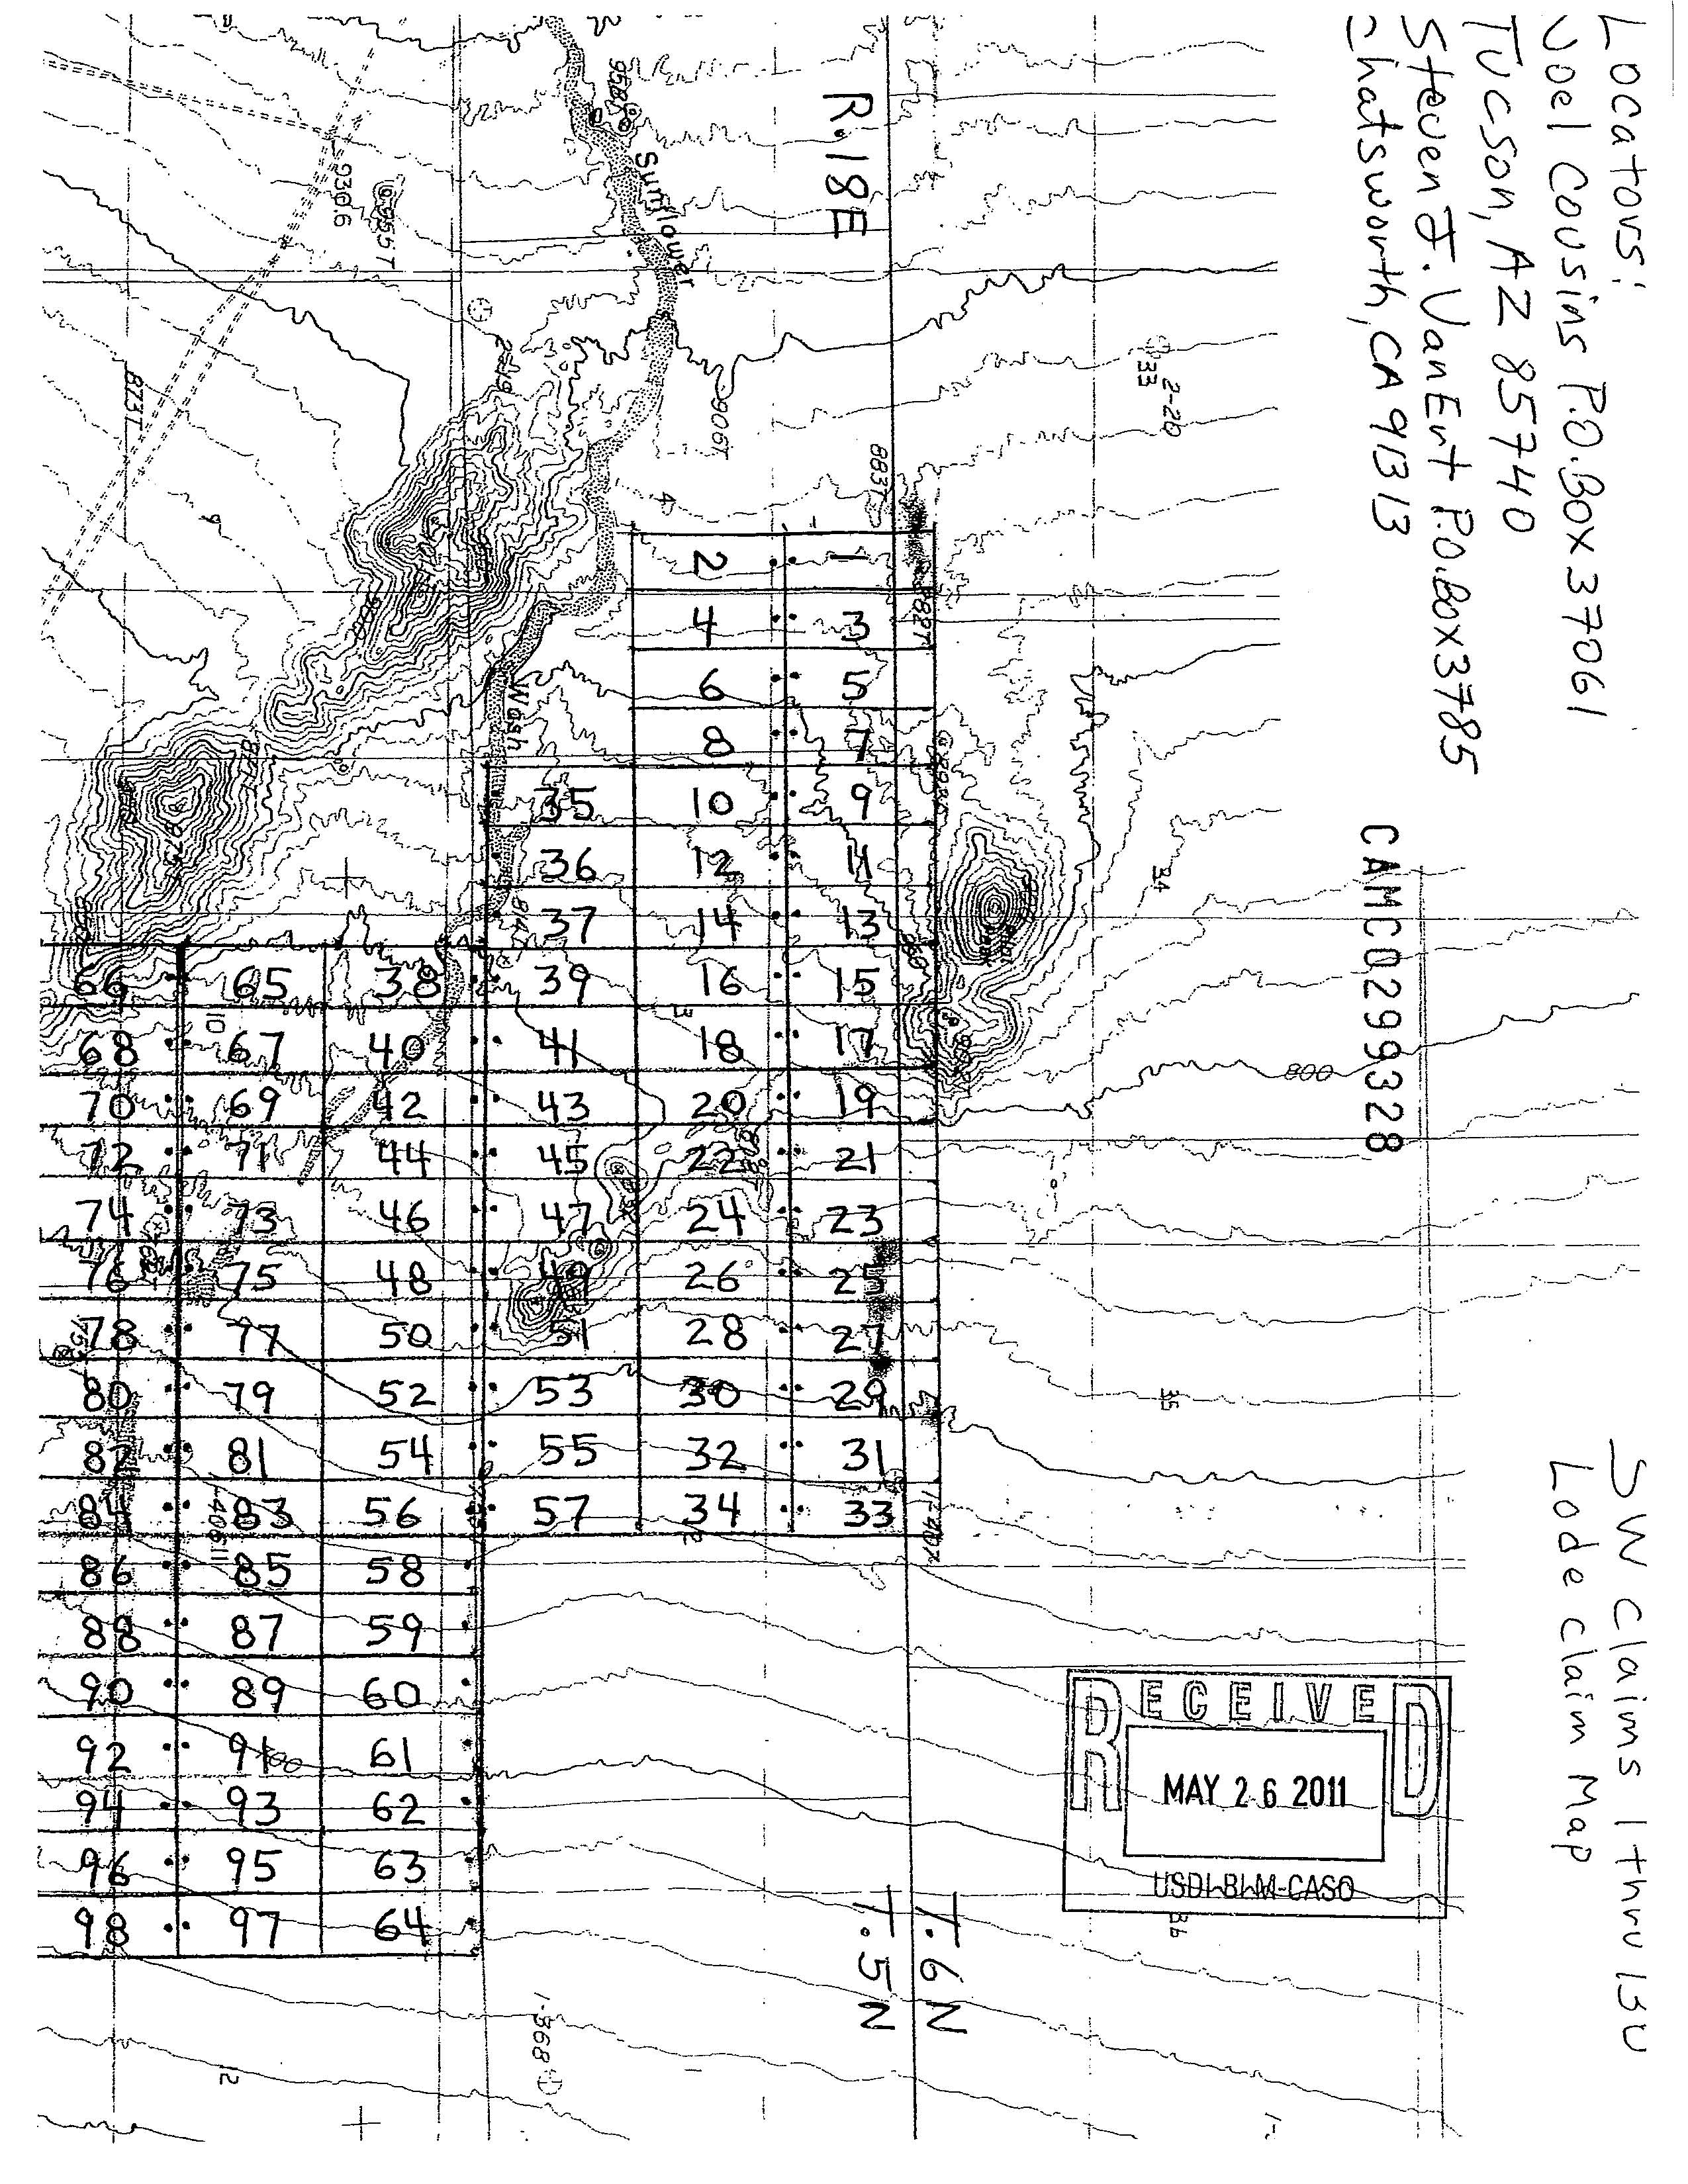 Locators:
Noel Cousins P.O. Box 37061
Tucson, AZ 85740
Steven J. VanErt P.O. Box 3785
Chatsworth, CA 91313
CAMC0299328
SW Claims 1 thru 130
Lode Claim Map
RECEIVED
MAY 26 2011
USDI-BLM-CASO
R.18E
T.6N
T.5N
Sunflower
Wash
958T
930.6
955T
873T
906T
883T
2-20
33
34
35
36
800
2-19
4
9
10
12
1
1-368
700
2 1
4 3
6 5
8 7
35 10 9
36 12 11
37 14 13
66 65 38 39 16 15
68 67 40 41 18 17
70 69 42 43 20 19
72 71 44 45 22 21
74 73 46 47 24 23
76 75 48 49 26 25
78 77 50 51 28 27
80 79 52 53 30 29
82 81 54 55 32 31
84 83 56 57 34 33
86 85 58
88 87 59
90 89 60
92 91 61
94 93 62
96 95 63
98 97 64